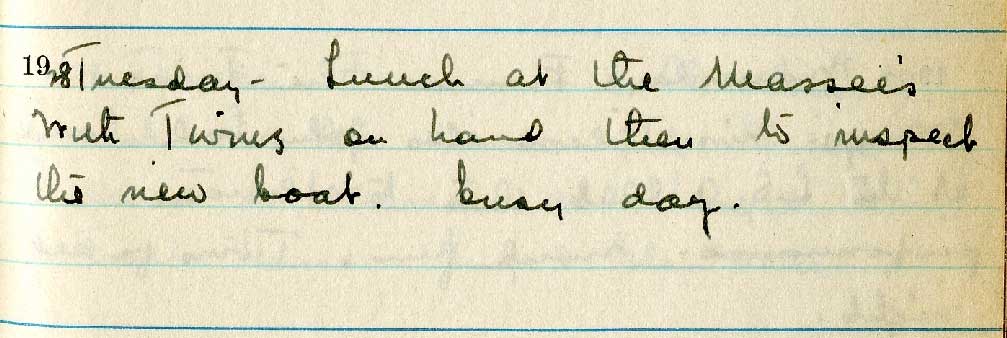 1928 Tuesday - Lunch at the Massee's
With Twins on hand then to inspect
the new boat. busy day.